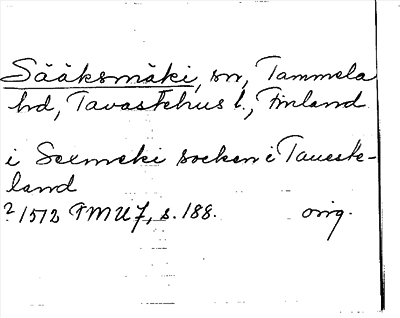 Sääksmäki, sn, Tammela
hd, Tavastehus l., Finland
i Seemeki socken i Tauest-
land
?1512 FMU 7, s. 188. orig.